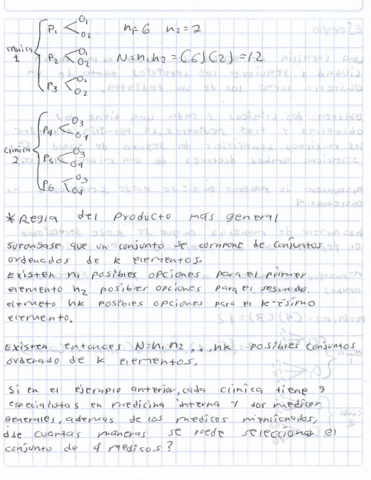 clinica 1
P1 < O1 O2
P2 < O1 O2
P3 < O1 O2
n1=6 n2=2
N=n1n2=(6)(2)=12
clinica 2
P4 < O3 O4
P5 < O3 O4
P6 < O3 O4
* Regla del Producto mas general
suponGase que un conjunto se compone de conjuntos
ordenados de k elementos.
Existen n1 posibles opciones para el primer
elemento n2 posibles opciones para el segundo
elemeto nk posibles opciones para el k-ésimo
elemento.
Existen entonces N=n1n2...nk posibles conjuntos
ordenado de k elementos.
Si en el ejemplo anterior, cada clinica tiene 3
especialistas en medicina interna y dos medicos
generales, ademas de los medicos mencionados,
dde cuantas maneras se puede seleccionar el
conjunto de 4 medicos?